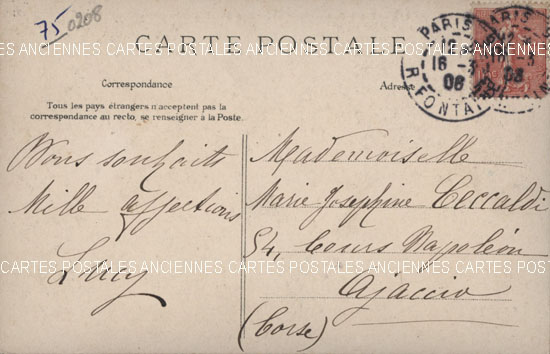 75 0208
CARTE POSTALE
PARIS
PARIS
16 -3
06
R. FONTAI
Correspondance
Adresse
Tous les pays étrangers n'acceptent pas la
correspondance au recto, se renseigner à la Poste.
CARTES POSTALES ANCIENNES CARTES POSTALES ANCIENNES CARTES POSTALES ANCIENNES
Bons souhaits
Mille affections
Lucy
Mademoiselle
Marie Josephine Ceccaldi
54, Cours Napoléon
Ajaccio
(Corse)
CARTES POSTALES ANCIENNES CARTES POSTALES ANCIENNES CARTES POSTALES ANCIENNES